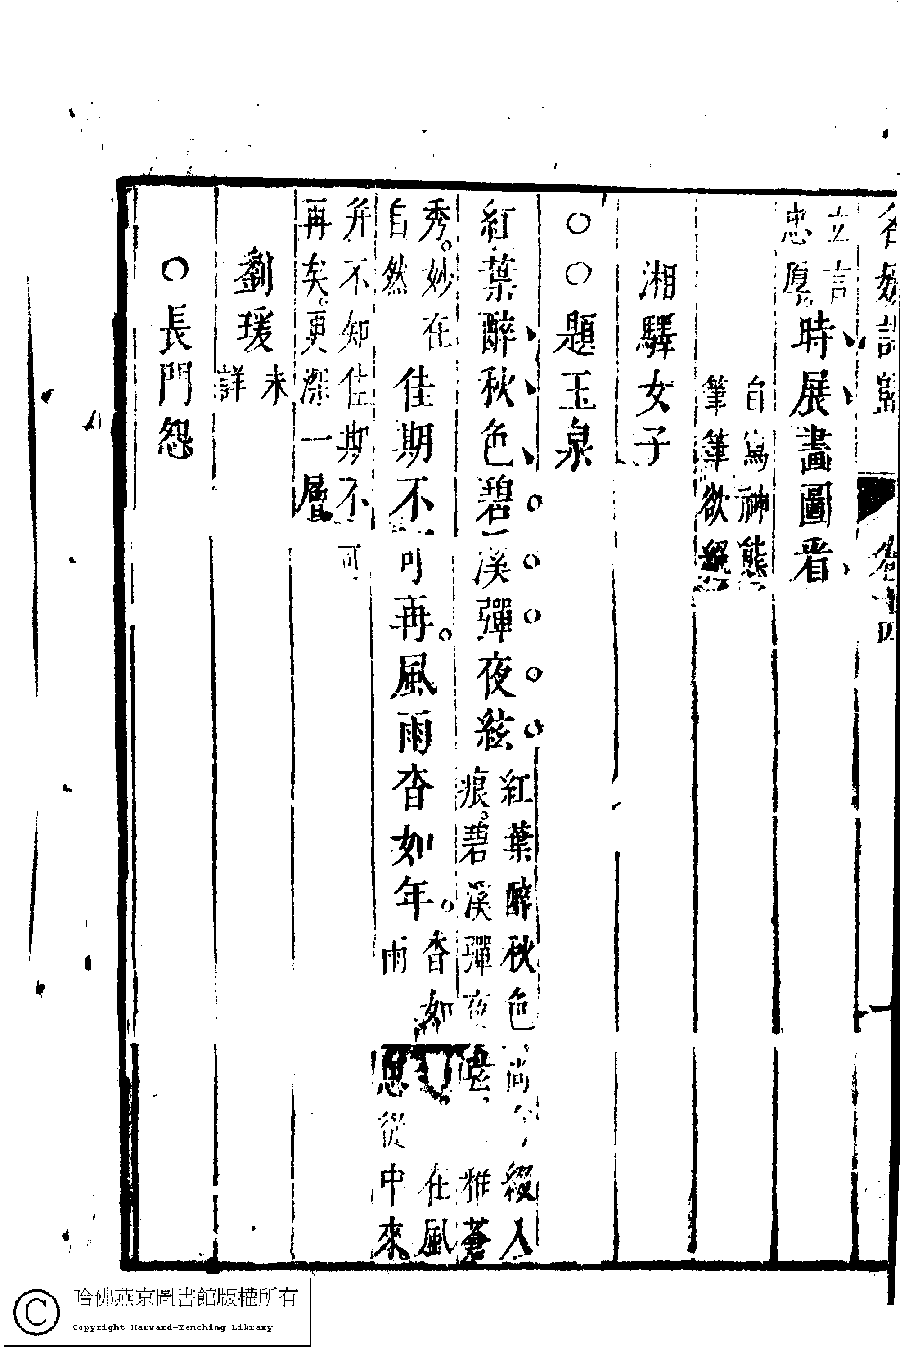 名媛詩歸 卷十四
立言
忠厚。時展畫圖看
自寫神態
筆筆欲
湘驛女子
○○題玉泉
紅葉醉秋色碧溪彈夜絃紅葉醉秋色。尚
痕。碧溪彈夜
綴人
雅蒼
秀。妙在
自然
佳期不可再。風雨杳如年。杳如
在風
雨
思從中來
并不知佳期不可
再矣。更深一層
劉瑗未
詳
○長門怨
哈佛燕京圖書館版權所有
Copyright Harvard-Yenching Library